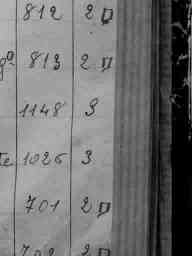 812 2
813 2
1148 3
te 1026 3
701 2
702 2